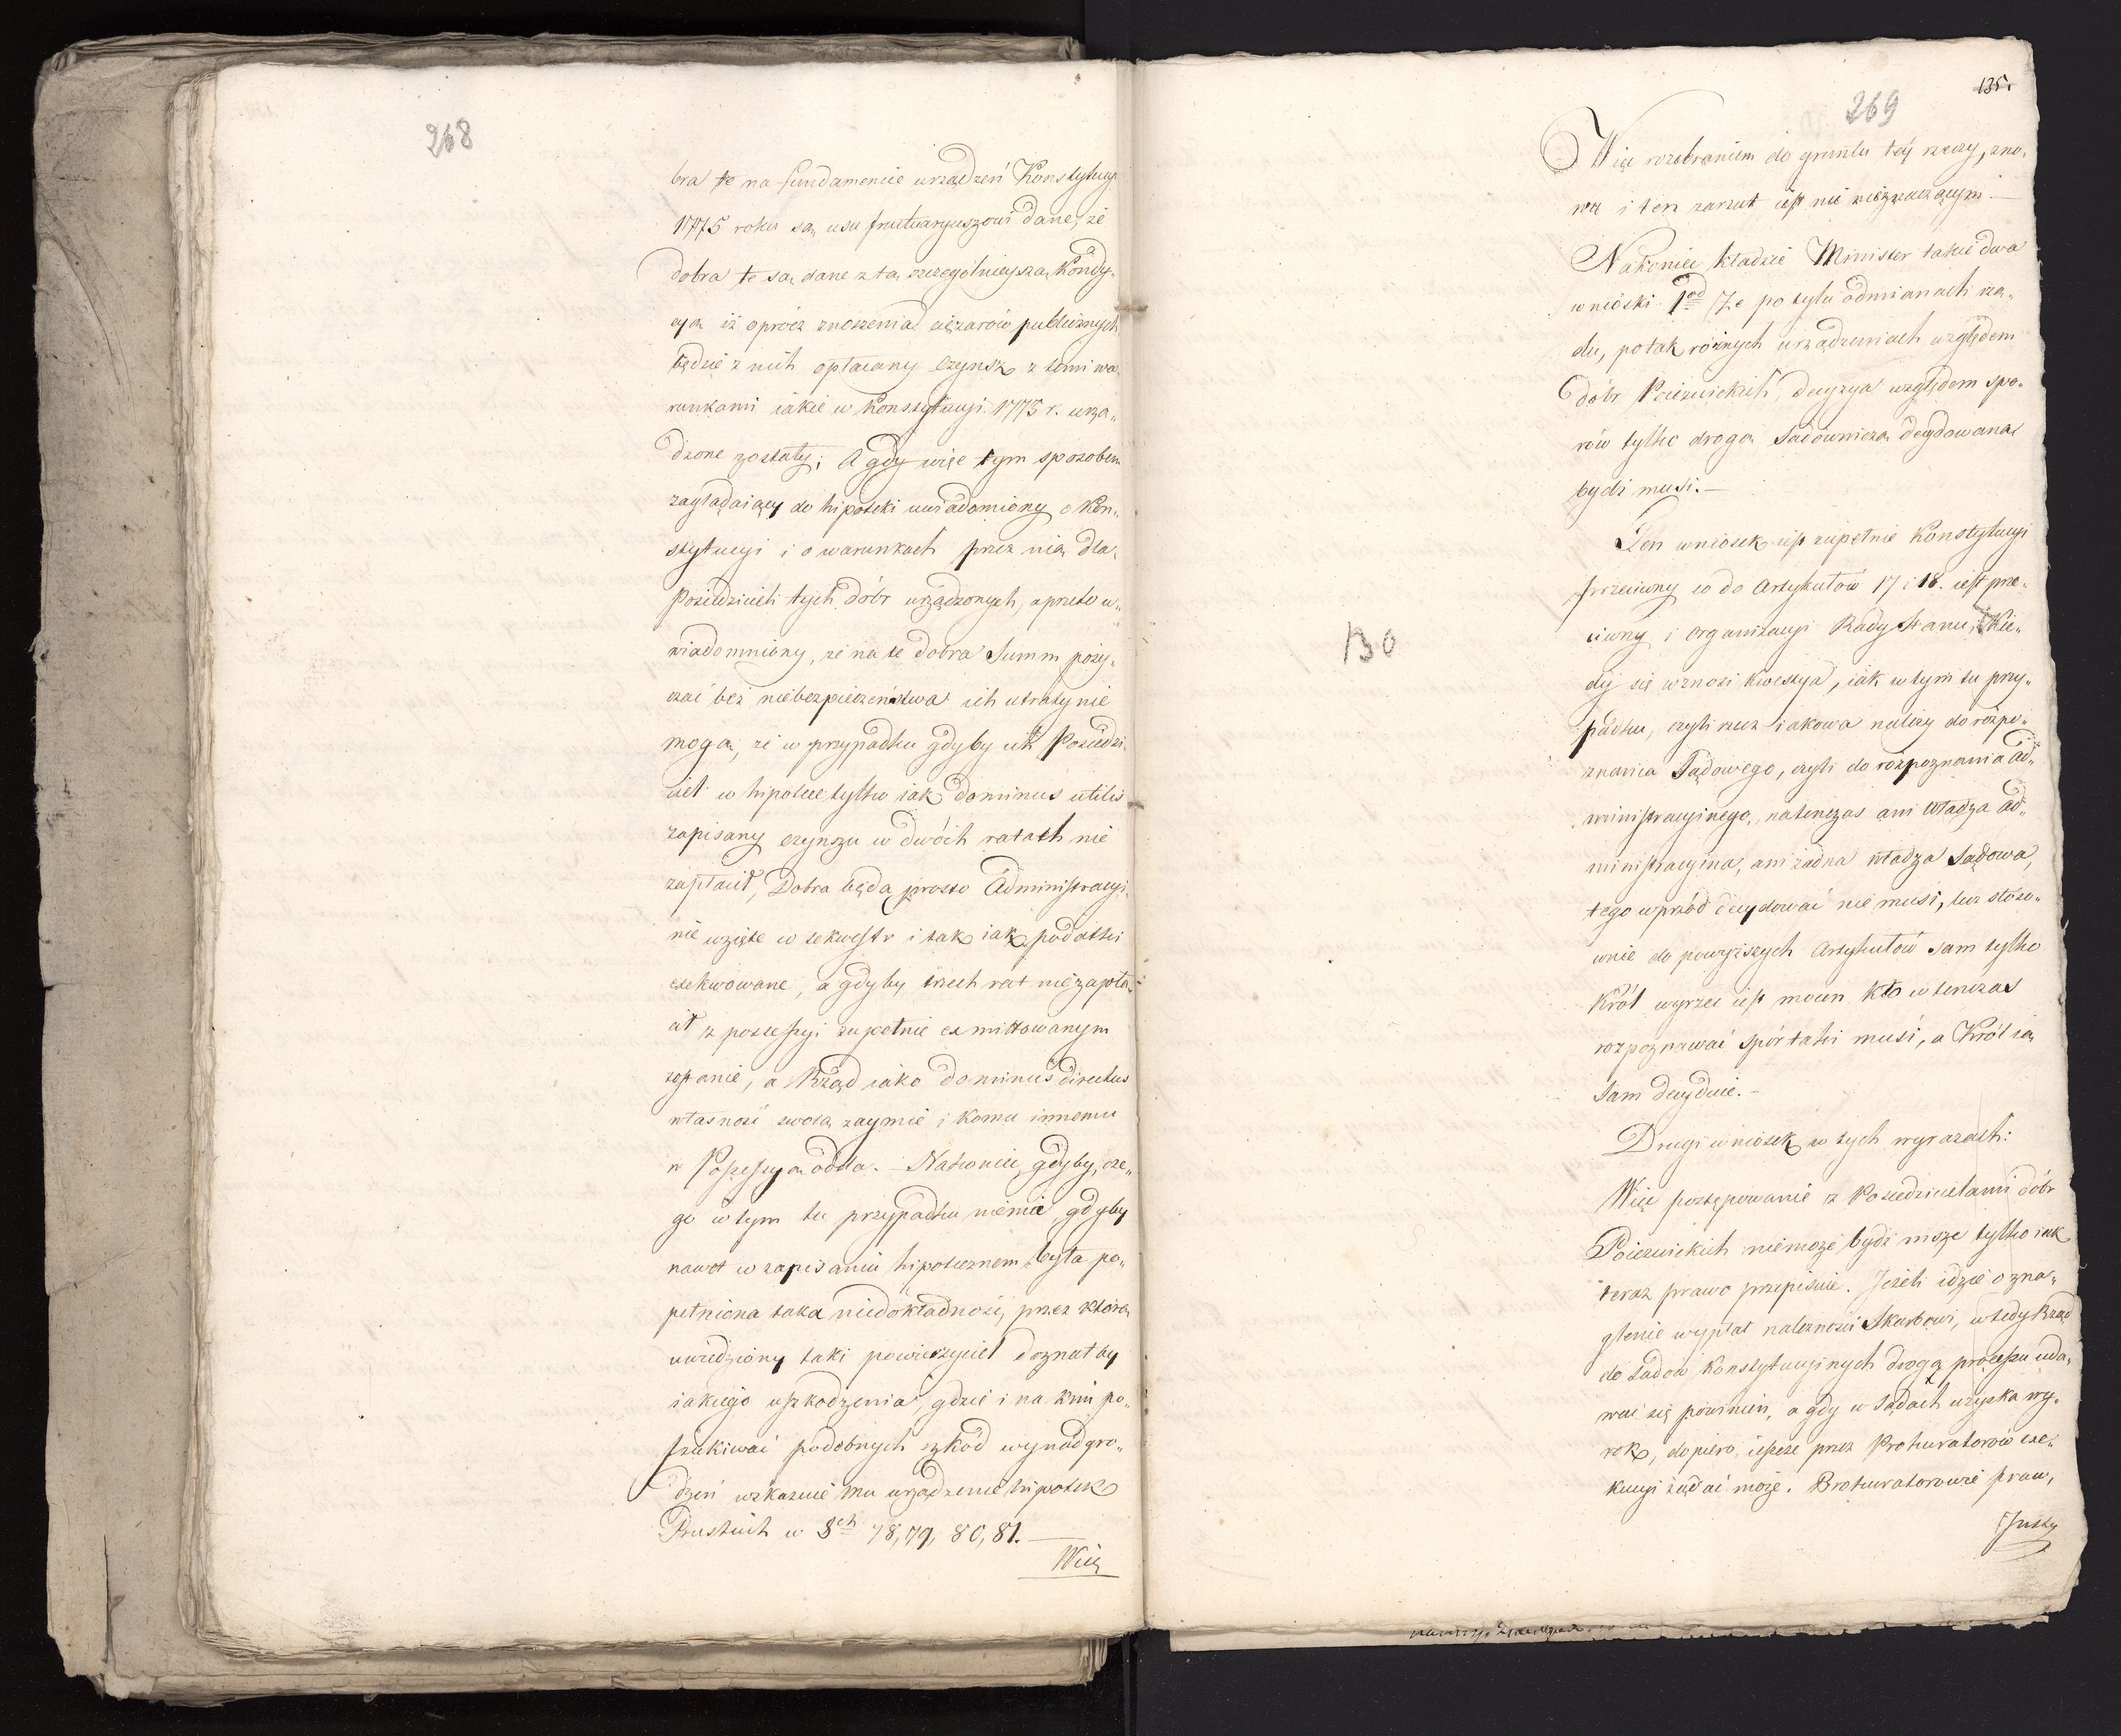 268
bra te na fundamencie urządzeń Konstytucyi
1775 roku są usu fructuaryuszowi dane, że
dobra te są dane z tą szczegolnieyszą Kondy„
cyą iż oprócz znoszenia ciężarów publicznych
będzie z nich opłacany czynsz z temi wa„
runkami iakie w Konstytucyi 1775 r. urzą„
dzone zostały; A gdy więc tym sposobem
zaglądaiący do hipoteki uwiadomiony o Kon„
stytucyi i o warunkach przez nią dla
Posiedzicieli tych dóbr urządzonych, a przeto u„
wiadomniony, że na te dobra Summ poży„
czać bez niebezpieczeństwa ich utraty nie
mogą, że w przypadku gdyby ich Posiedzi„
ciel w hipotece tylko iak dominus utilis
zapisany czynszu w dwóch ratach nie
zapłacił, Dobra będą prosto Administracyi„
nie wzięte w sekwestr i tak iak podatki
exekwowane, a gdyby trzech rat nie zapła„
cił z possessyi zupełnie exmittowanym
zostanie, a Rząd iako dominus directus
własność swoią zaymie i komu innemu
w Possessyą odda. – Nakoniec gdyby, cze„
go w tym tu przypadku niema gdyby
nawet w zapisaniu hipotecznem była po„
pełniona taka niedokładność, przez którą
uwiedziony taki powierzyciel doznał by
iakiego uszkodzenia, gdzie i na kim po„
szukiwać podobnych szkód wynadgro„
dzeń wskazuie mu urządzenie hipotek
Pruskich w §ch 78, 79, 80, 81. —
Więc
135.
269
Więc rozebraniem do gruntu tey rzeczy, zno„
wu i ten zarzut iest nic nieznaczącym —
Nakoniec kładzie Minister takie dwa
wnioski 1od Że po tylu odmianach rzą„
du, po tak różnych urządzeniach względem
dóbr Poiezuickich, decyzya względem spo„
rów tylko drogą Sądowniczą decydowana
bydź musi. —
Ten wniosek iest zupełnie Konstytucyi
przeciwny co do Artykułów 17 i 18. iest prze„
ciwny i organizacyi Rady Stanu, Kie„
dy się wznosi kwestya, iak w tym tu przy„
padku, czyli rzecz iakowa należy do rozpo„
znania Sądowego, czyli do rozpoznania ad„
ministracyinego, natenczas ani władza ad„
ministracyina, ani żadna władza Sądowa,
tego wprzód decydować nie musi, lecz stoso„
wnie do powyższych Artykułów sam tylko
Król wyrzec iest mocen kto w tenczas
rozpoznawać spór taki musi, a Król ią
Sam decyduie. –
130
Drugi wniosek w tych wyrazach:
Więc postępowanie z Posiedzicielami dóbr
Poiezuickich niemoże bydź insze tylko iak
teraz prawo przepisuie. Jeżeli idzie o zna„
glenie wypłat należności Skarbowi, wtedy Rząd
do Sądów Konstytucyinych drogą processu uda„
wać się powinien, a gdy w Sądach uzyska wy„
rok, dopiero ieszcze przez Prokuratorów exe„
kucyi żądać może. Prokuratorowie praw„